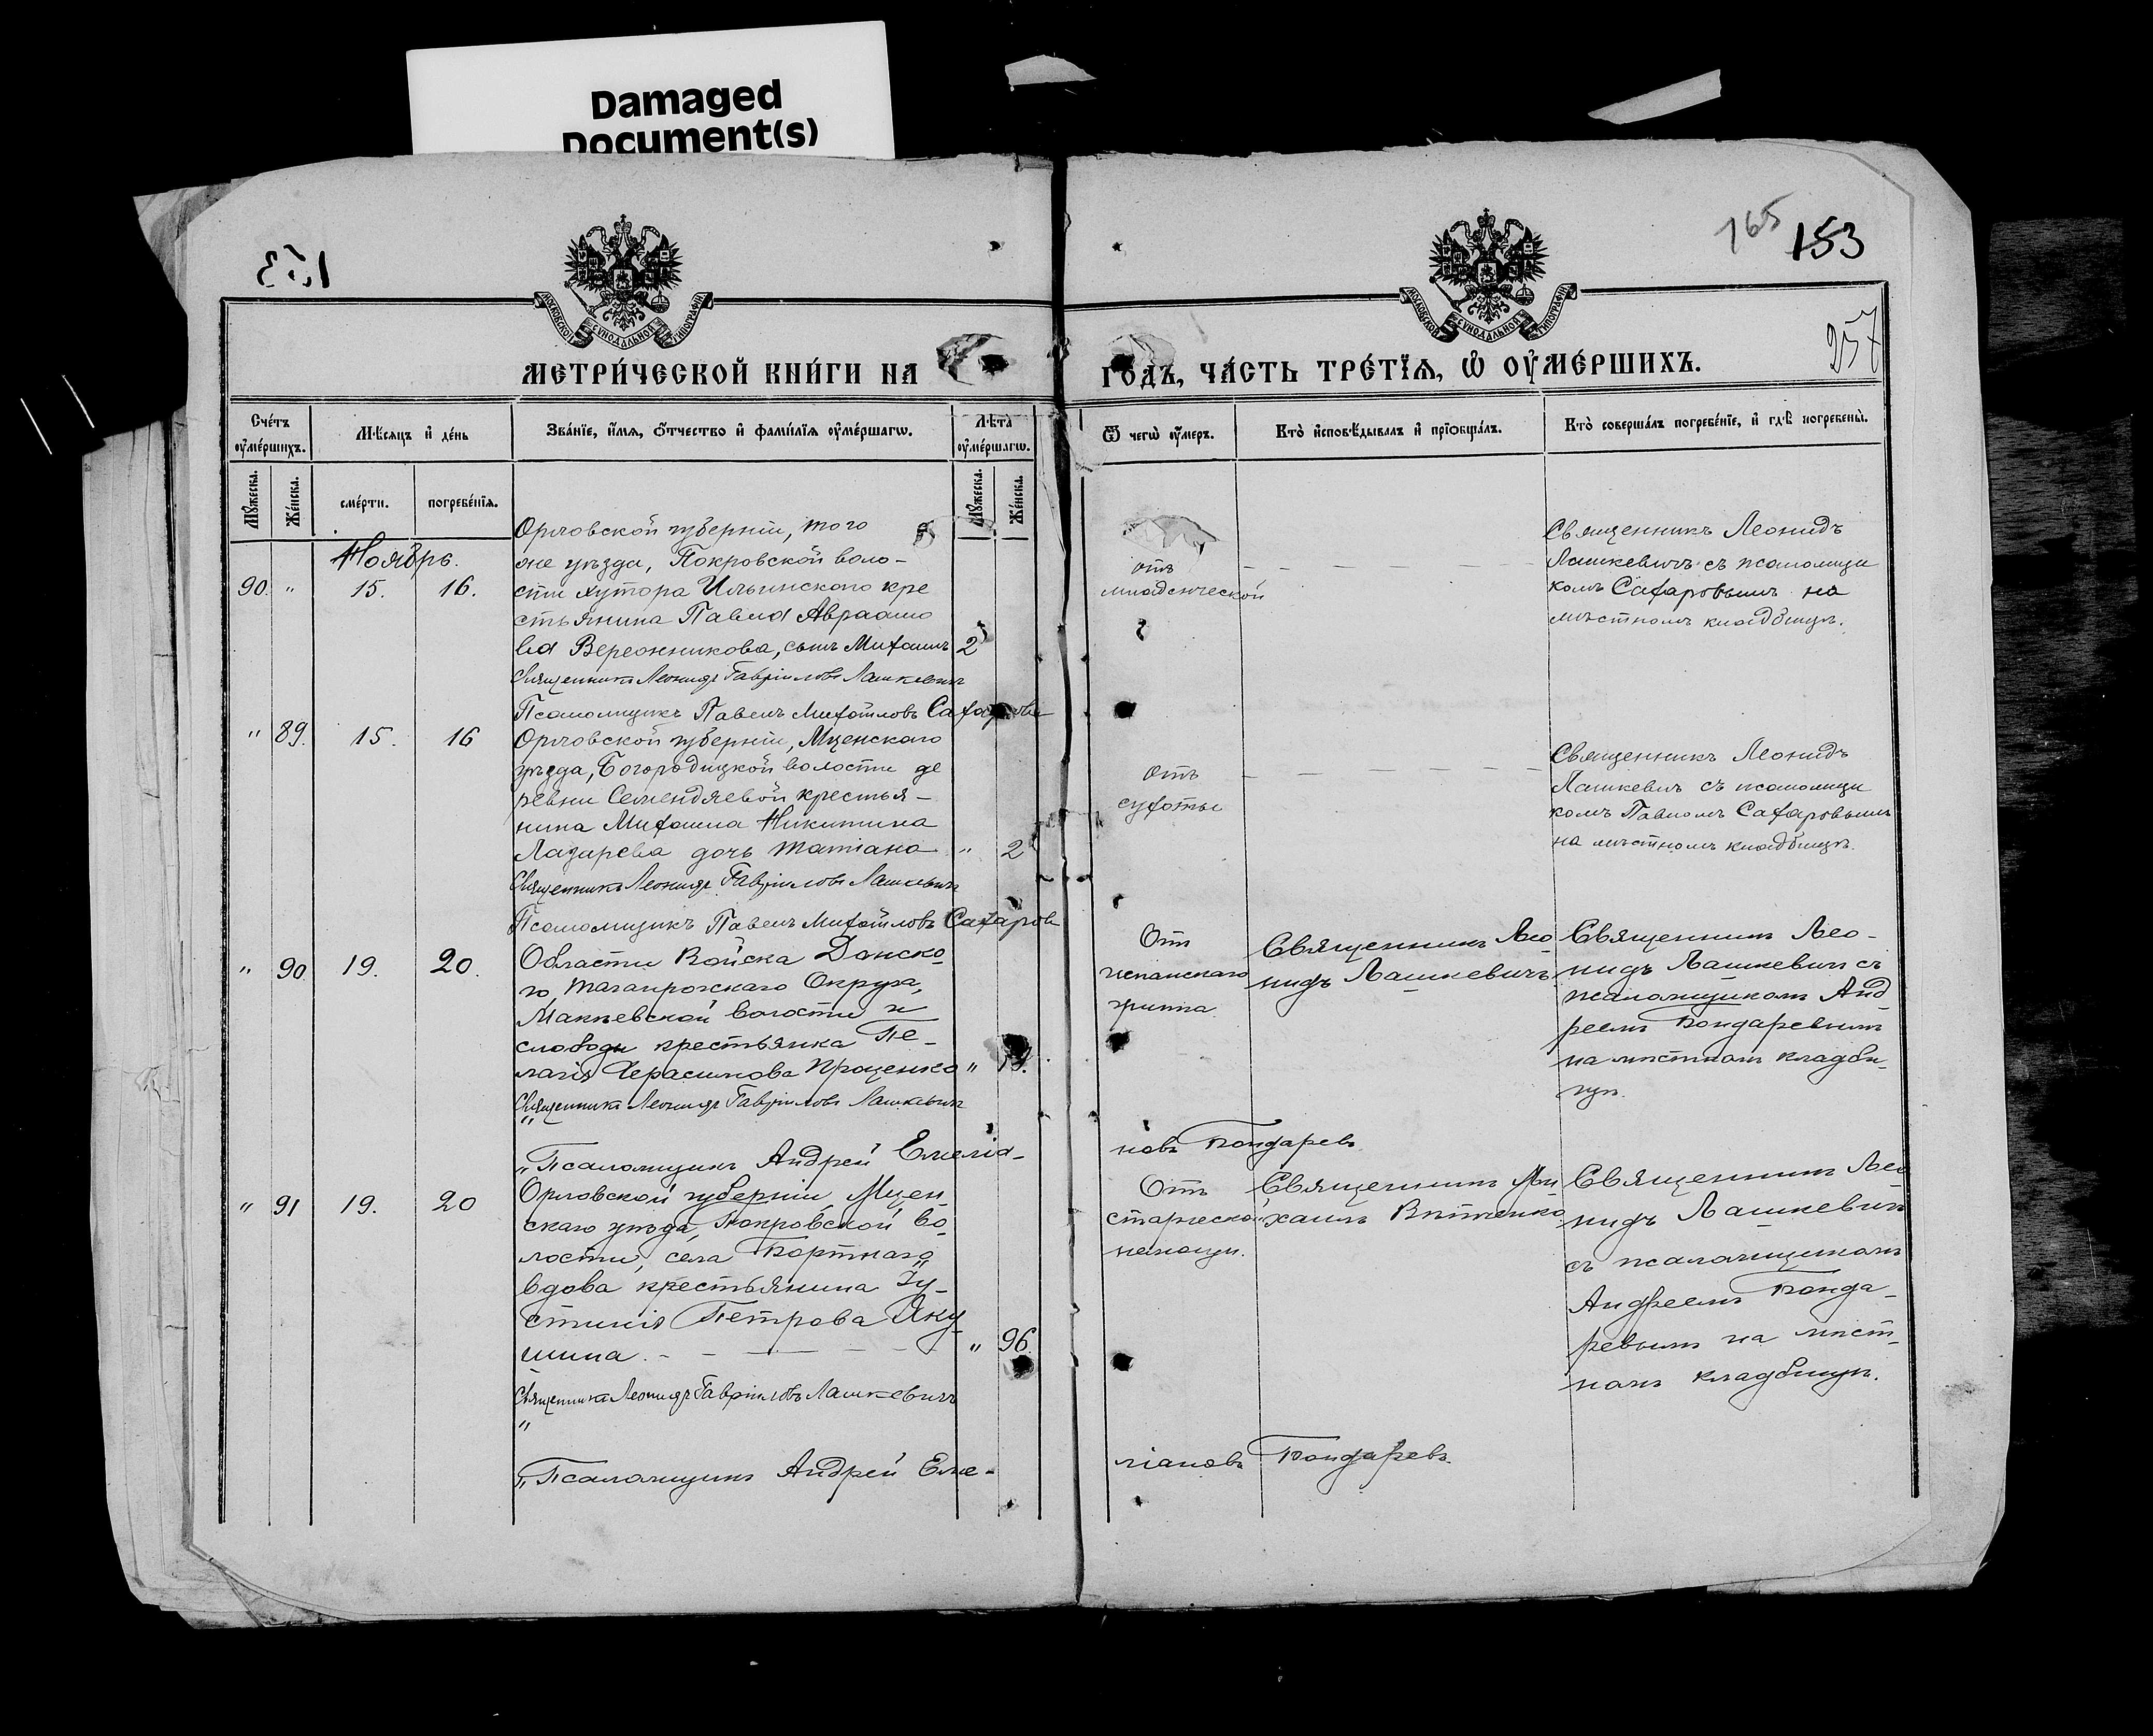 Damaged
Document(s)
165
153
257
МОСКОВСКОЙ СѴНОДАЛЬНОЙ ТИПОГРАФІИ
МОСКОВСКОЙ СѴНОДАЛЬНОЙ ТИПОГРАФІИ
МЕТРИ́ЧЕСКОЙ КНИ́ГИ НА
ГО́ДЪ, ЧА́СТЬ ТРЕ́ТЇѦ, Ѡ҆ ОУ҆МЕ́РШИХЪ.
Сче́тъ оу҆ме́ршихъ.
Мѣ́сяцъ и҆ де́нь
Зва́нїе, и҆́мѧ, ѻ҆́тчество и҆ фами́лїѧ оу҆ме́ршагѡ.
Лѣта̀ оу҆ме́ршагѡ.
Ѿ чегѡ̀ оу҆́меръ.
Кто̀ и҆сповѣ́дывалъ и҆ прїѡбща́лъ.
Кто̀ соверша́лъ погребе́нїе, и҆ гдѣ̀ погребены̀.
Мꙋ́жеска. Же́нска. сме́рти. погребе́нїѧ. Мꙋ́жеска. Же́нска.
Ноябрь.
90. " 15. 16.
Орловской губерніи, того
же уѣзда, Покровской воло-
сти хутора Ильинского кре
стьянина Павла Авраамо
ва Веревкикова, сынъ Михаилъ 2
Священникъ Леонидъ Гавріиловъ Лашкевичъ
Псаломщикъ Павелъ Михайловъ Сахаровъ
отъ
младенческой
Священникъ Леонидъ
Лашкевичъ съ псаломщи
комъ Сахаровымъ на
мѣстномъ кладбищѣ.
" 89. 15. 16
Орловской губерніи, Мценскаго
уѣзда, Богородицкой волости де
ревни Семендяевой крестья-
нина Михаила Никитина
Лазарева дочь Татіана " 2
Священникъ Леонидъ Гавріиловъ Лашкевичъ
Псаломщикъ Павелъ Михайловъ Сахаровъ
отъ
сухоты
Священникъ Леонидъ
Лашкевичъ съ псаломщи
комъ Павломъ Сахаровымъ
на мѣстномъ кладбищѣ.
" 90 19. 20.
Области Войска Донско-
го, Таганрогскаго Округа,
Макѣевской волости и
слободы крестьянка Пе-
лагія Герасимова Проценко "
Священникъ Леонидъ Гавріиловъ Лашкевичъ
"
"Псаломщикъ Андрей Емеліа-
новъ Бондаревъ
Отъ
испанскаго
гриппа.
Священникъ Лео-
нидъ Лашкевичъ
Священникъ Лео-
нидъ Лашкевичъ съ
псаломщикомъ Анд
реемъ Бондаревымъ
на мѣстномъ кладби-
щѣ.
" 91 19. 20
Орловской губерніи, Мцен-
скаго уѣзда, Покровской во-
лости, села Бортнаго
вдова крестьянина Іу-
стинія Петрова Яку-
шина. " 96.
Священникъ Леонидъ Гавріиловъ Лашкевичъ
"
"Псаломщикъ Андрей Еме-
ліановъ Бондаревъ.
Отъ
старческой
немощи.
Священникъ Ми-
хаилъ
Священникъ Лео
нидъ Лашкевичъ
съ псаломщикомъ
Андреемъ Бонда-
ревымъ на мѣст-
номъ кладбищѣ.